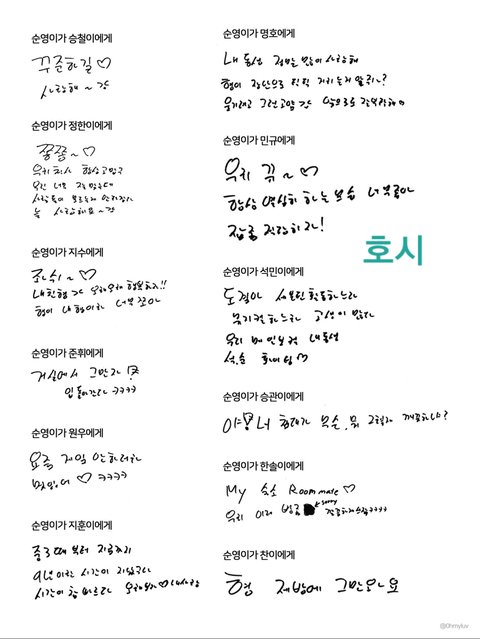 순영이가 승철이에게
꾸준하길♡
사랑해~
순영이가 정한이에게
쫑쫑~♡
우리 회사 항상 고맙구
늘 사랑해요~
순영이가 지수에게
조슈~♡
내 친형 오래오래 행복하자!!
형이 내 형이라 너무 좋아
순영이가 준휘에게
거실에서 그만자!
입 돌아간다 ㅋㅋㅋㅋ
순영이가 원우에게
요즘 게임 안하더라
멋있어♡ ㅋㅋㅋㅋ
순영이가 지훈이에게
중3때부터 지금까지
9년이란 시간이 지났구나
시간이 참 빠르다 오래보자♡
순영이가 명호에게
내 동생 정말 많이 사랑해
형이 장난으로 틱틱 거리는거 알쥐~?
앞으로도 잘부탁해
순영이가 민규에게
우리 뀪~♡
항상 열심히 하는 모습 너무좋아
지금 처럼 하자!
호시
순영이가 석민이에게
도겸아 세븐틴 활동하느라
뮤지컬하느라 고생이 많다
우리 메인보컬 내동생
석순 화이팅♡
순영이가 승관이에게
야! 너 형한테
순영이가 한솔이에게
My 숙소 Roommate♡
우리 이제 방금 sorry
순영이가 찬이에게
형 제방에 그만와요
@0hmyluv